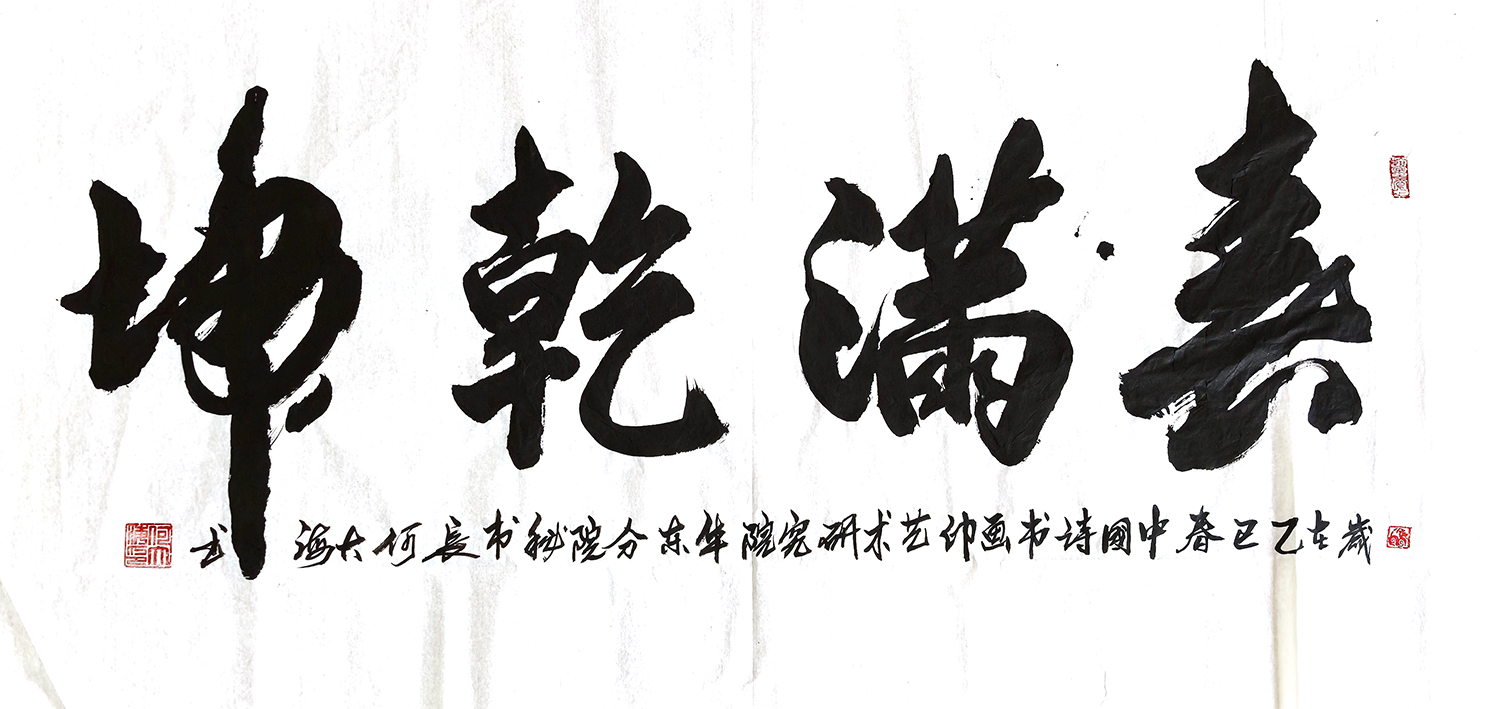 喜满乾坤
歲在乙巳春中國詩书画印艺术研究院华东分院秘书長何大海书